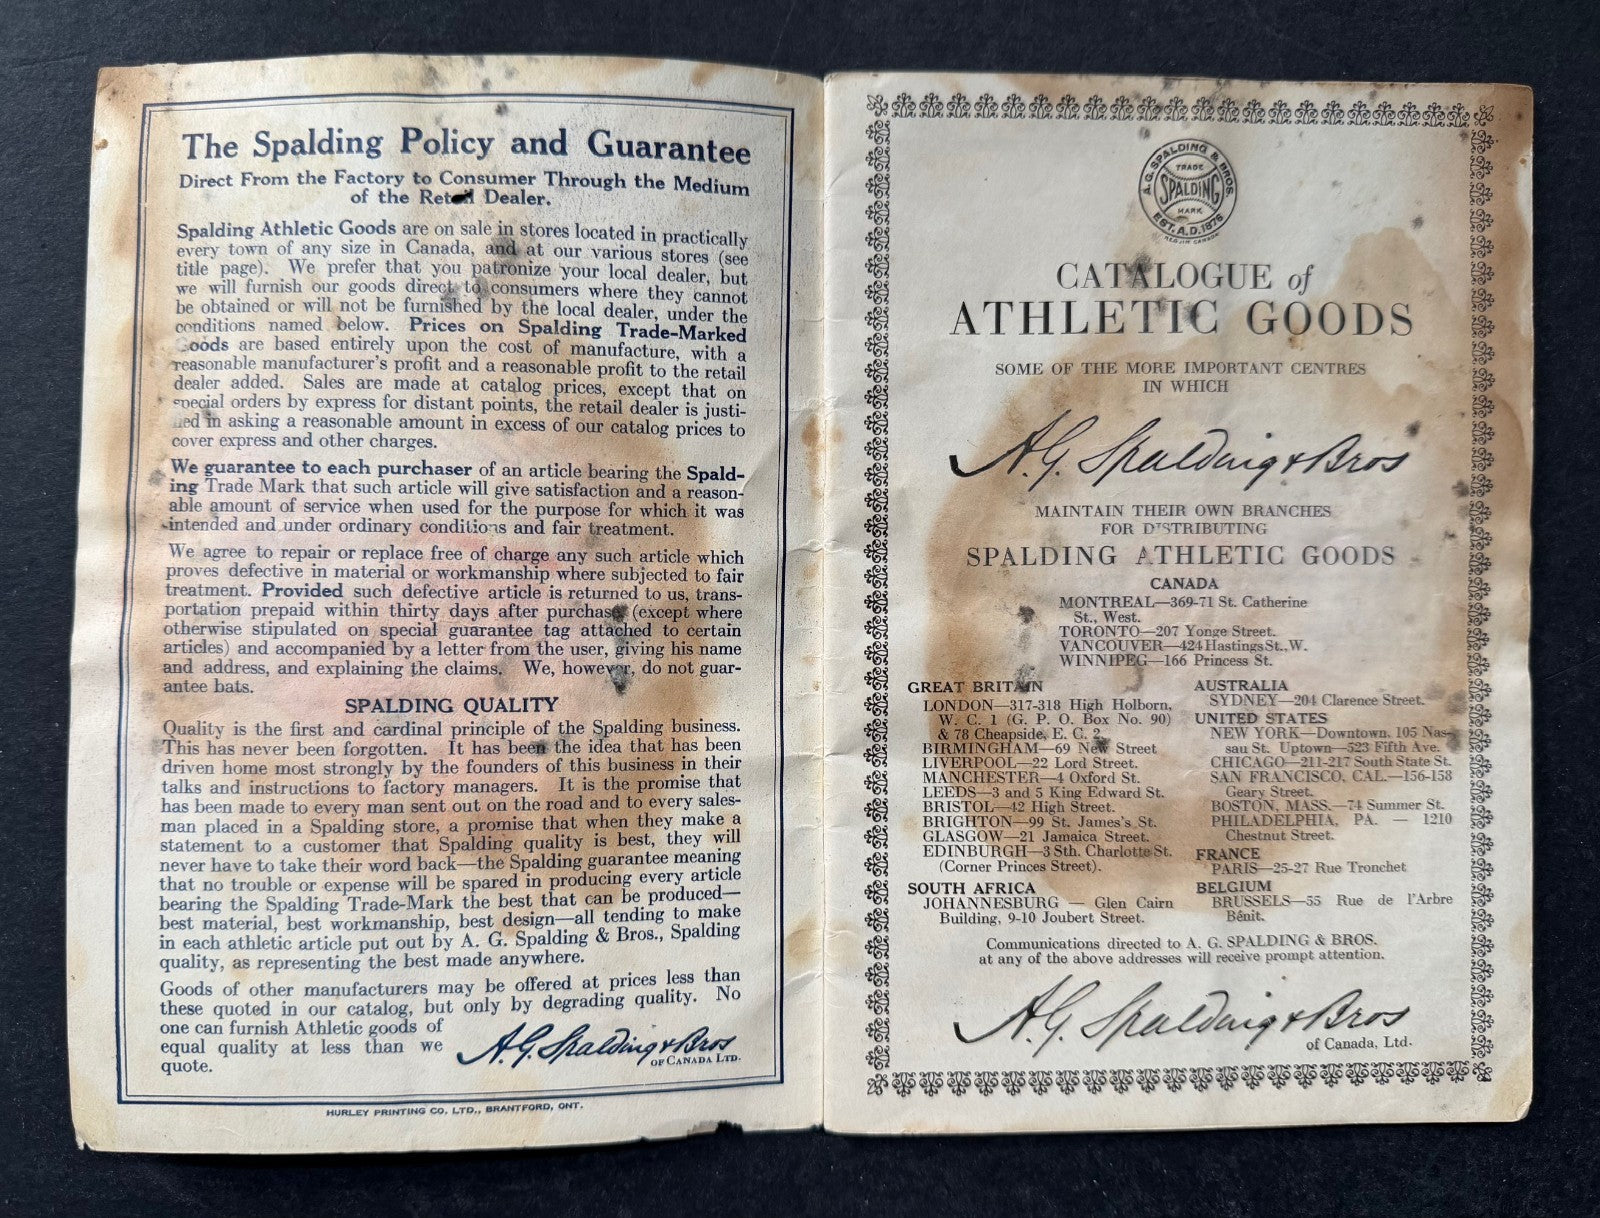 The Spalding Policy and Guarantee
Direct From the Factory to Consumer Through the Medium
of the Retail Dealer.
Spalding Athletic Goods are on sale in stores located in practically
every town of any size in Canada, and at our various stores (see
title page). We prefer that you patronize your local dealer, but
we will furnish our goods direct to consumers where they cannot
be obtained or will not be furnished by the local dealer, under the
conditions named below. Prices on Spalding Trade-Marked
Goods are based entirely upon the cost of manufacture, with a
reasonable manufacturer's profit and a reasonable profit to the retail
dealer added. Sales are made at catalog prices, except that on
special orders by express for distant points, the retail dealer is justi-
fied in asking a reasonable amount in excess of our catalog prices to
cover express and other charges.
We guarantee to each purchaser of an article bearing the Spald-
ing Trade Mark that such article will give satisfaction and a reason-
able amount of service when used for the purpose for which it was
intended and under ordinary conditions and fair treatment.
We agree to repair or replace free of charge any such article which
proves defective in material or workmanship where subjected to fair
treatment. Provided such defective article is returned to us, trans-
portation prepaid within thirty days after purchase (except where
otherwise stipulated on special guarantee tag attached to certain
articles) and accompanied by a letter from the user, giving his name
and address, and explaining the claims. We, however, do not guar-
antee bats.
SPALDING QUALITY
Quality is the first and cardinal principle of the Spalding business.
This has never been forgotten. It has been the idea that has been
driven home most strongly by the founders of this business in their
talks and instructions to factory managers. It is the promise that
has been made to every man sent out on the road and to every sales-
man placed in a Spalding store, a promise that when they make a
statement to a customer that Spalding quality is best, they will
never have to take their word back—the Spalding guarantee meaning
that no trouble or expense will be spared in producing every article
bearing the Spalding Trade-Mark the best that can be produced—
best material, best workmanship, best design—all tending to make
in each athletic article put out by A. G. Spalding & Bros., Spalding
quality, as representing the best made anywhere.
Goods of other manufacturers may be offered at prices less than
these quoted in our catalog, but only by degrading quality. No
one can furnish Athletic goods of
equal quality at less than we
quote.
A. G. Spalding & Bros
OF CANADA LTD.
HURLEY PRINTING CO. LTD., BRANTFORD, ONT.
A. G. SPALDING & BROS.
TRADE
SPALDING
MARK
EST. A.D. 1876
REG. IN CANADA
CATALOGUE of
ATHLETIC GOODS
SOME OF THE MORE IMPORTANT CENTRES
IN WHICH
A. G. Spalding & Bros
MAINTAIN THEIR OWN BRANCHES
FOR DISTRIBUTING
SPALDING ATHLETIC GOODS
CANADA
MONTREAL—369-71 St. Catherine
St., West.
TORONTO—207 Yonge Street.
VANCOUVER—424 Hastings St., W.
WINNIPEG—166 Princess St.
GREAT BRITAIN
LONDON—317-318 High Holborn,
W. C. 1 (G. P. O. Box No. 90)
& 78 Cheapside, E. C. 2
BIRMINGHAM—69 New Street
LIVERPOOL—22 Lord Street.
MANCHESTER—4 Oxford St.
LEEDS—3 and 5 King Edward St.
BRISTOL—42 High Street.
BRIGHTON—99 St. James's St.
GLASGOW—21 Jamaica Street.
EDINBURGH—3 Sth. Charlotte St.
(Corner Princes Street).
SOUTH AFRICA
JOHANNESBURG — Glen Cairn
Building, 9-10 Joubert Street.
AUSTRALIA
SYDNEY—204 Clarence Street.
UNITED STATES
NEW YORK—Downtown. 105 Nas-
sau St. Uptown—523 Fifth Ave.
CHICAGO—211-217 South State St.
SAN FRANCISCO, CAL.—156-158
Geary Street.
BOSTON, MASS.—74 Summer St.
PHILADELPHIA, PA. — 1210
Chestnut Street.
FRANCE
PARIS—25-27 Rue Tronchet
BELGIUM
BRUSSELS—55 Rue de l'Arbre
Bénit.
Communications directed to A. G. SPALDING & BROS.
at any of the above addresses will receive prompt attention.
A. G. Spalding & Bros
of Canada, Ltd.